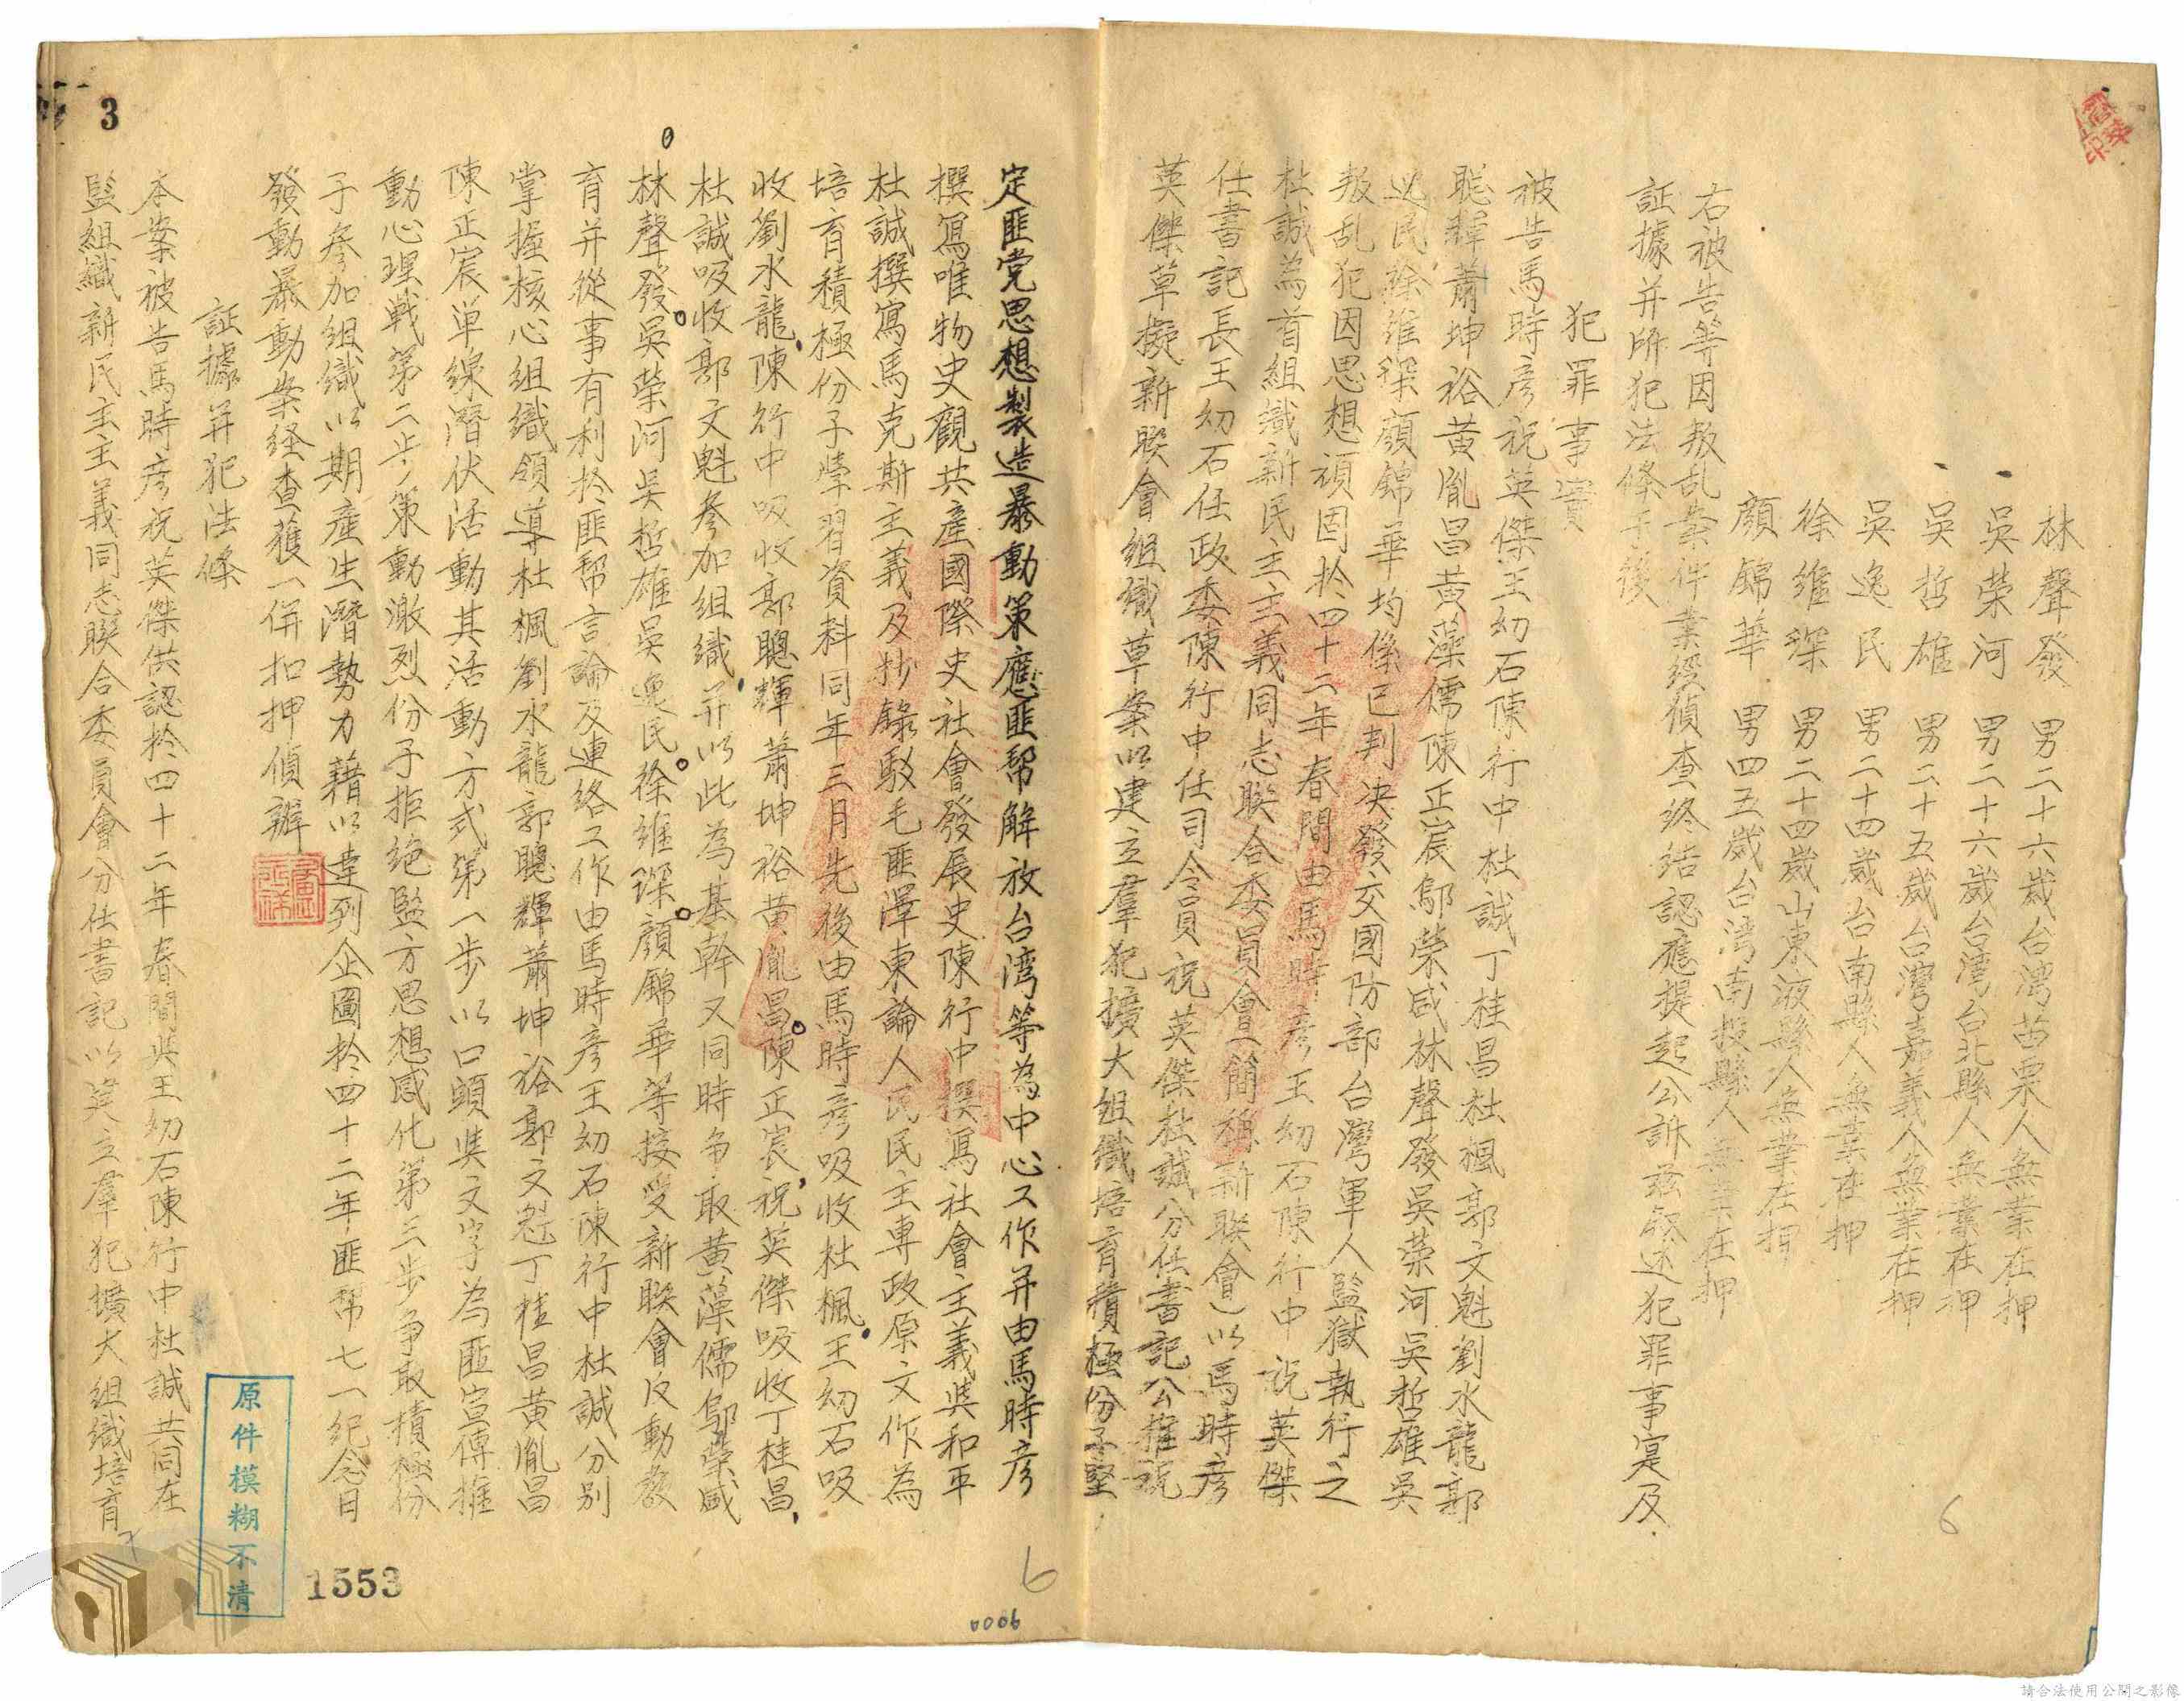 林聲發　男二十六歲台灣苗栗人無業在押
吳榮河　男二十六歲台灣台北縣人無業在押
吳哲雄　男二十五歲台灣嘉義人無業在押
吳逸民　男二十四歲台南縣人無業在押
徐維琛　男二十四歲山東液縣人無業在押
顏錦華　男四五歲台灣南投縣人無業在押
右被告等因叛乱案件業經偵查終結認應提起公訴茲敘述犯罪事寔及
証據并所犯法條于後
犯罪事實
被告馬時彥祝英傑王幼石陳行中杜誠丁桂昌杜楓郭文魁劉水龍郭
聰輝蕭坤裕黃胤昌黃藻儒陳正宸鄔榮咸林聲發吳榮河吳哲雄吳
逸民徐維琛顏錦華均係已判决發交國防部台灣軍人監獄執行之
叛乱犯因思想頑固於四十二年春間由馬時彥王幼石陳行中祝英傑
杜誠為首組織新民主主義同志聯合委員會(簡稱新聯會)以馬時彥
任書記長王幼石任政委陳行中任司令員祝英傑杜誠分任書記公推祝
英傑草擬新聯會組織草案以建立羣犯擴大組織培育積極份子堅
定匪党思想製造暴動策應匪幫解放台湾等為中心工作并由馬時彥
撰寫唯物史觀共產國際史社會發展史陳行中撰寫社會主義與和平
杜誠撰寫馬克斯主義及抄錄駁毛匪澤東論人民民主專政原文作為
培育積極份子學習資料同年三月先後由馬時彥吸收杜楓王幼石吸
收劉水龍陳行中吸收郭聰輝蕭坤裕黃胤昌陳正宸祝英傑吸收丁桂昌
杜誠吸收郭文魁參加組織并以此為基幹又同時争取黃藻儒鄔榮咸
林聲發吳榮河吳哲雄吳逸民徐維琛顏錦華等接受新聯會反動教
育并從事有利於匪幫言論及連絡工作由馬時彥王幼石陳行中杜誠分別
掌握核心組織領導杜楓劉水龍郭聰輝蕭坤裕郭文魁丁桂昌黃胤昌
陳正宸单線潛伏活動其活動方式第一步以口頭與文字為匪宣傳推
動心理戰第二步策動激烈份子拒絕監方思想感化第三步争取積極份
子參加組織以期產生潛勢力藉以達到企圖於四十二年匪幫七一紀念日
發動暴動案経查獲一併扣押偵辦
証據并犯法條
本案被告馬時彥祝英傑供認於四十二年春間與王幼石陳行中杜誠共同在
監組織新民主主義同志聯合委員會分任書記以建立羣犯擴大組織培育
3
6
6
0006
1553
原件模糊不清
請合法使用公開之影像